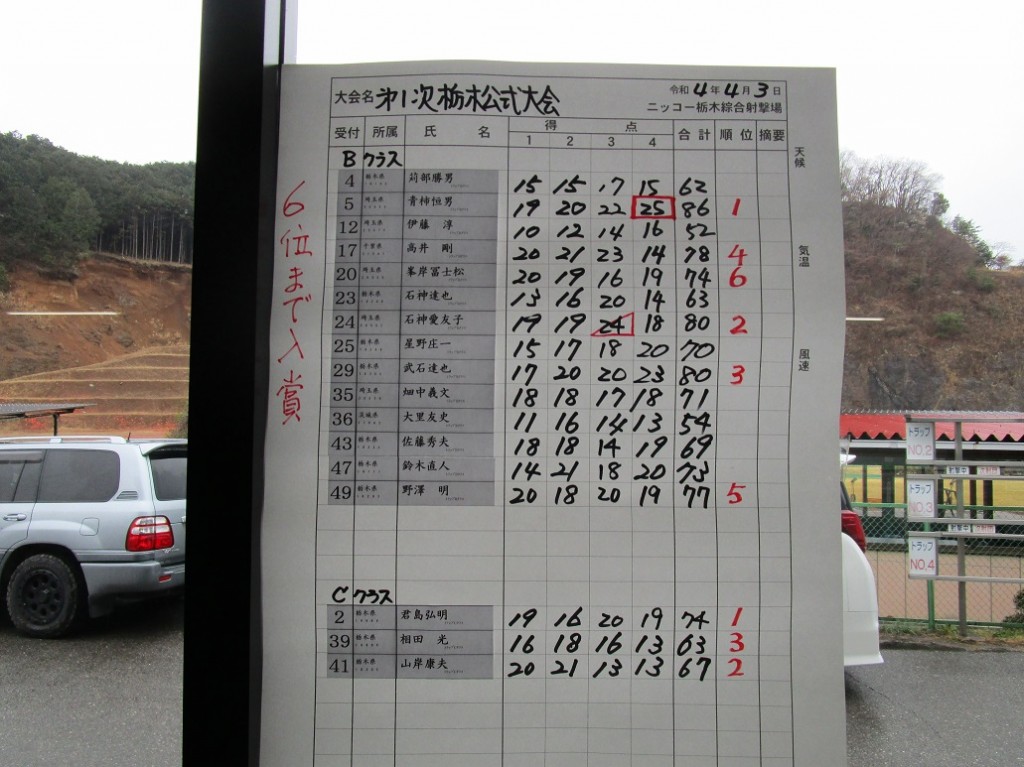 大会名 才1次栃木公式大会
令和 4年 4月 3日
ニッコー栃木綜合射撃場
受付 所属 氏 名 得 点 合計 順位 摘要
1 2 3 4
Bクラス
4 栃木県 苅部勝男 15 15 17 15 62
5 埼玉県 青柿恒男 19 20 22 25 86 1
12 埼玉県 伊藤 淳 10 12 14 16 52
17 千葉県 高井 剛 20 21 23 14 78 4
20 埼玉県 峯岸冨士松 20 19 16 19 74 6
23 栃木県 石神達也 13 16 20 14 63
24 埼玉県 石神愛友子 19 19 24 18 80 2
25 栃木県 星野庄一 15 17 18 20 70
29 栃木県 武石達也 17 20 20 23 80 3
35 埼玉県 畑中義文 18 18 17 18 71
36 茨城県 大里友史 11 16 14 13 54
43 栃木県 佐藤秀夫 18 18 14 19 69
47 栃木県 鈴木直人 14 21 18 20 73
49 栃木県 野澤 明 20 18 20 19 77 5
Cクラス
2 栃木県 君島弘明 19 16 20 19 74 1
39 栃木県 相田 光 16 18 16 13 63 3
41 栃木県 山岸康夫 20 21 13 13 67 2
6位まで入賞
天候
気温
風速
トラップ
NO.2
トラップ
NO.3
トラップ
NO.4